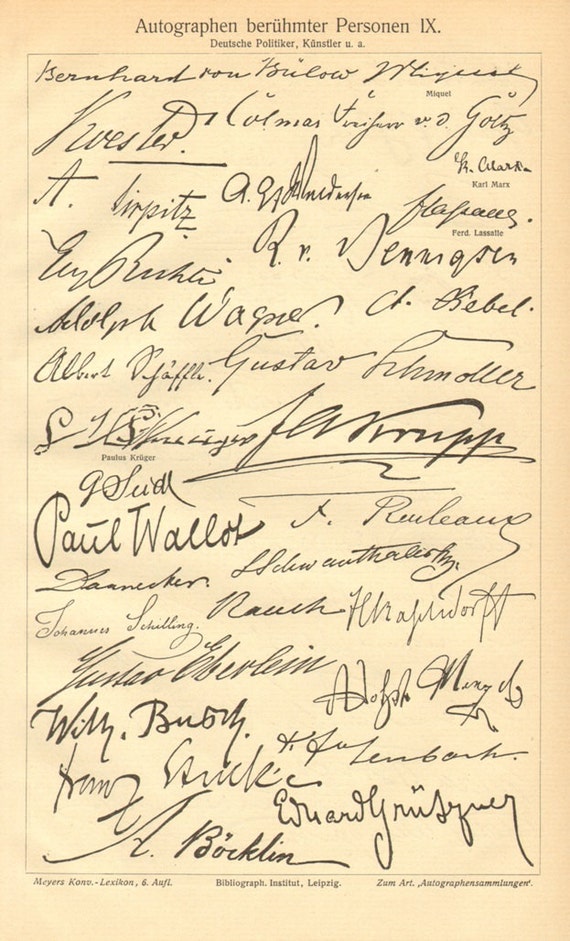 Autographen berühmter Personen IX.
Deutsche Politiker, Künstler u. a.
Bernhard von Bülow Miquel
Miquel
Koester. Dr Colmar Freiherr v. d. Goltz
K. Marx
Karl Marx
A. Tirpitz
Lassalle.
Ferd. Lassalle
R. v. Bennigsen
Eug Richter
Adolph Wagner. A. Bebel.
Albert Schäffle. Gustav Schmoller
Krüger FAKrupp
Paulus Krüger
G Seidl
Paul Wallot F. Reuleaux
Dannecker. LSchwanthaler
Johannes Schilling. Rauch
Gustav Eberlein
Adolph Menzel
Wilh. Busch.
Franz Stuck
Eduard Grützner
A. Böcklin
Meyers Konv.-Lexikon, 6. Aufl. Bibliograph. Institut, Leipzig. Zum Art. „Autographensammlungen“.